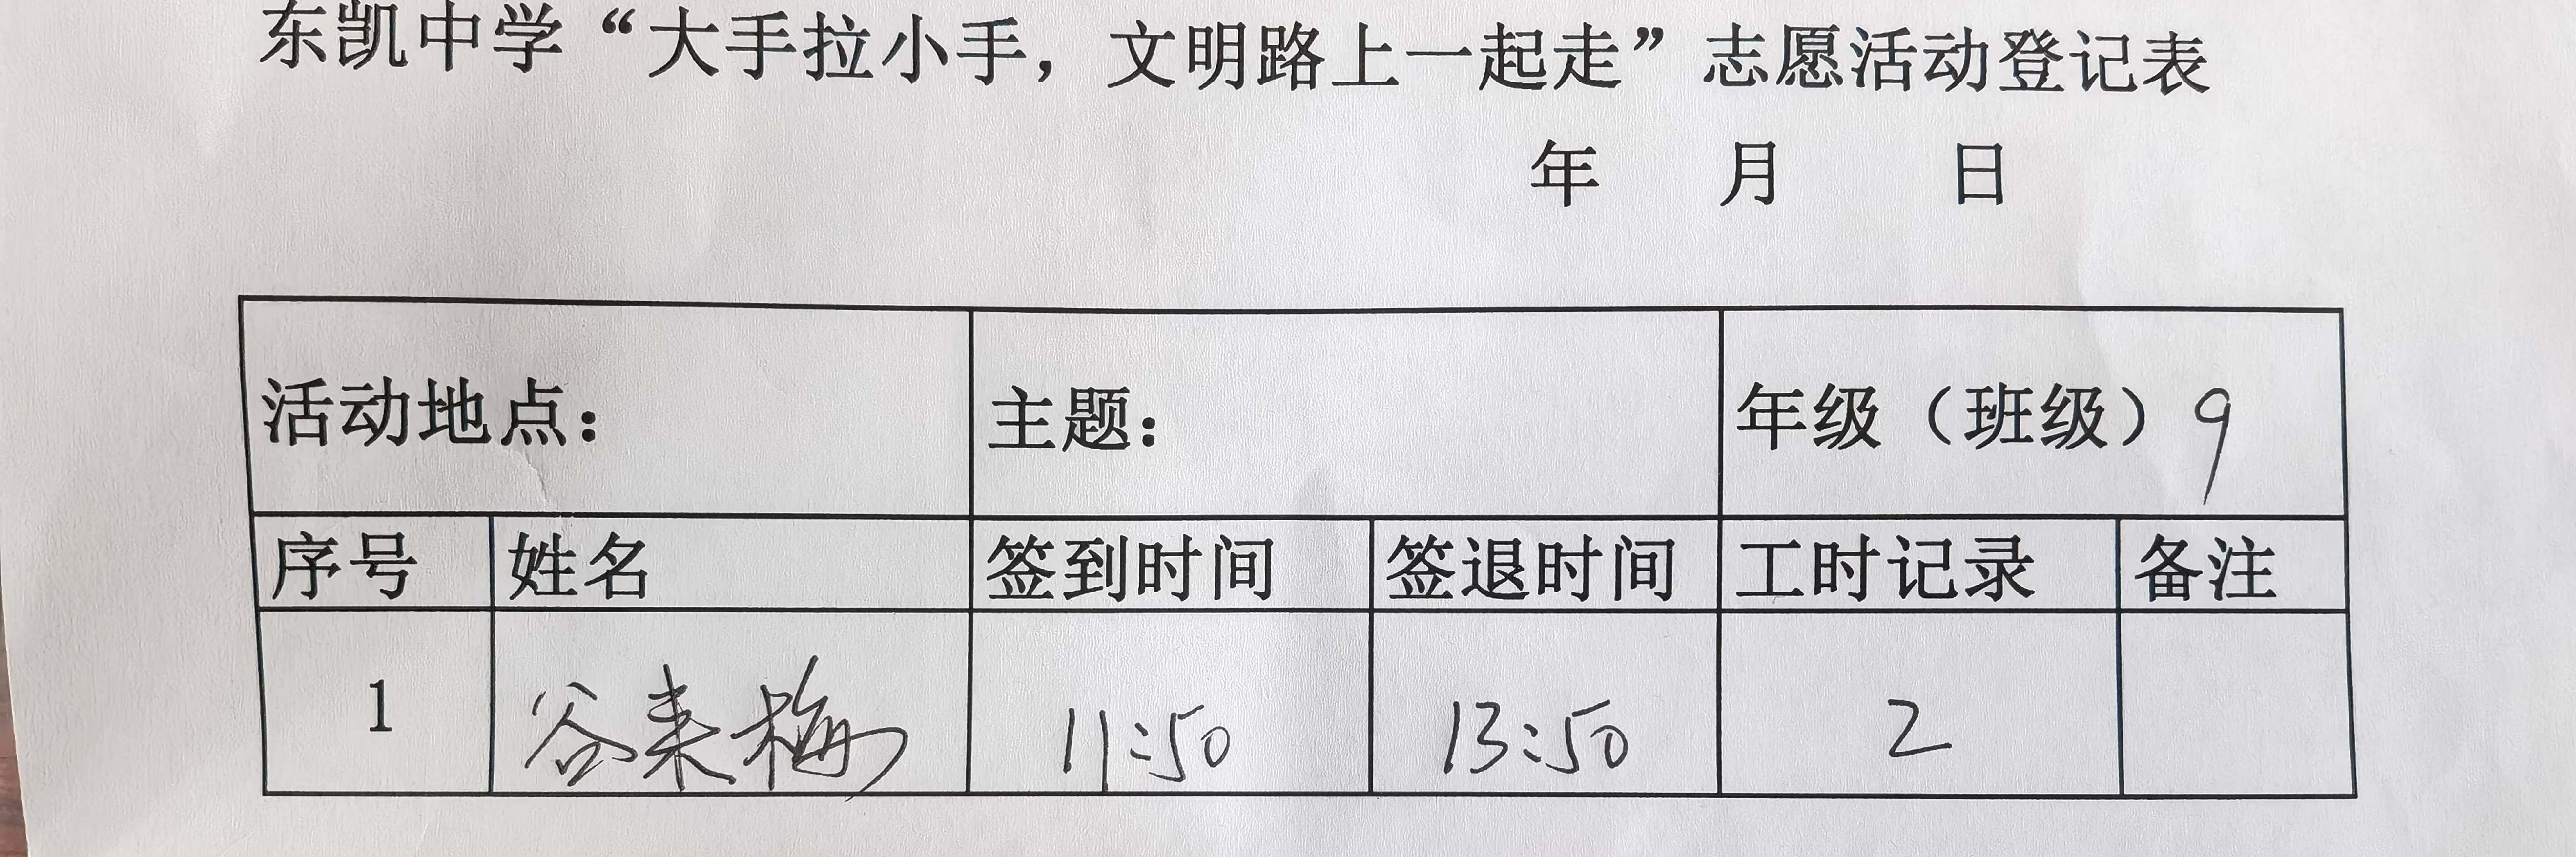 东凯中学“大手拉小手，文明路上一起走”志愿活动登记表
年 月 日
活动地点： 主题： 年级（班级）9
序号 姓名 签到时间 签退时间 工时记录 备注
1 谷来梅 11:50 13:50 2